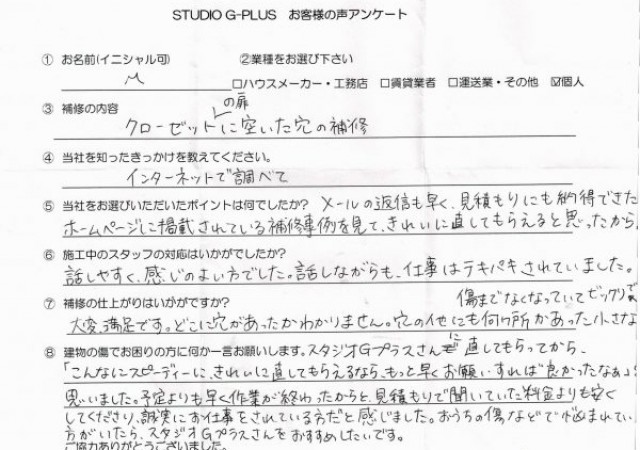 STUDIO G-PLUS お客様の声アンケート
① お名前(イニシャル可) ②業種をお選び下さい
M □ハウスメーカー・工務店 □賃貸業者 □運送業・その他 ☑個人
③ 補修の内容
クローゼットの扉に空いた穴の補修
④ 当社を知ったきっかけを教えてください。
インターネットで調べて
⑤ 当社をお選びいただいたポイントは何でしたか? メールの返信も早く、見積もりにも納得できた
ホームページに掲載されている補修事例を見て、きれいに直してもらえると思ったから
⑥ 施工中のスタッフの対応はいかがでしたか?
話しやすく、感じのよい方でした。話しながらも、仕事はテキパキされていました。
⑦ 補修の仕上がりはいかがですか? 傷までなくなっていてビックリで
大変、満足です。どこに穴があったかわかりません。穴の他にも何ヶ所かあった小さな
⑧ 建物の傷でお困りの方に何か一言お願いします。スタジオGプラスさんに直してもらってから、
「こんなにスピーディーに、きれいに直してもらえるなら、もっと早くお願いすれば良かったなぁ」
思いました。予定よりも早く作業が終わったからと、見積もりで聞いていた料金よりも安く
してくださり、誠実にお仕事をされている方だと感じました。おうちの傷などで悩まれてい
方がいたら、スタジオGプラスさんをおすすめしたいです。
ご協力ありがとうございました。